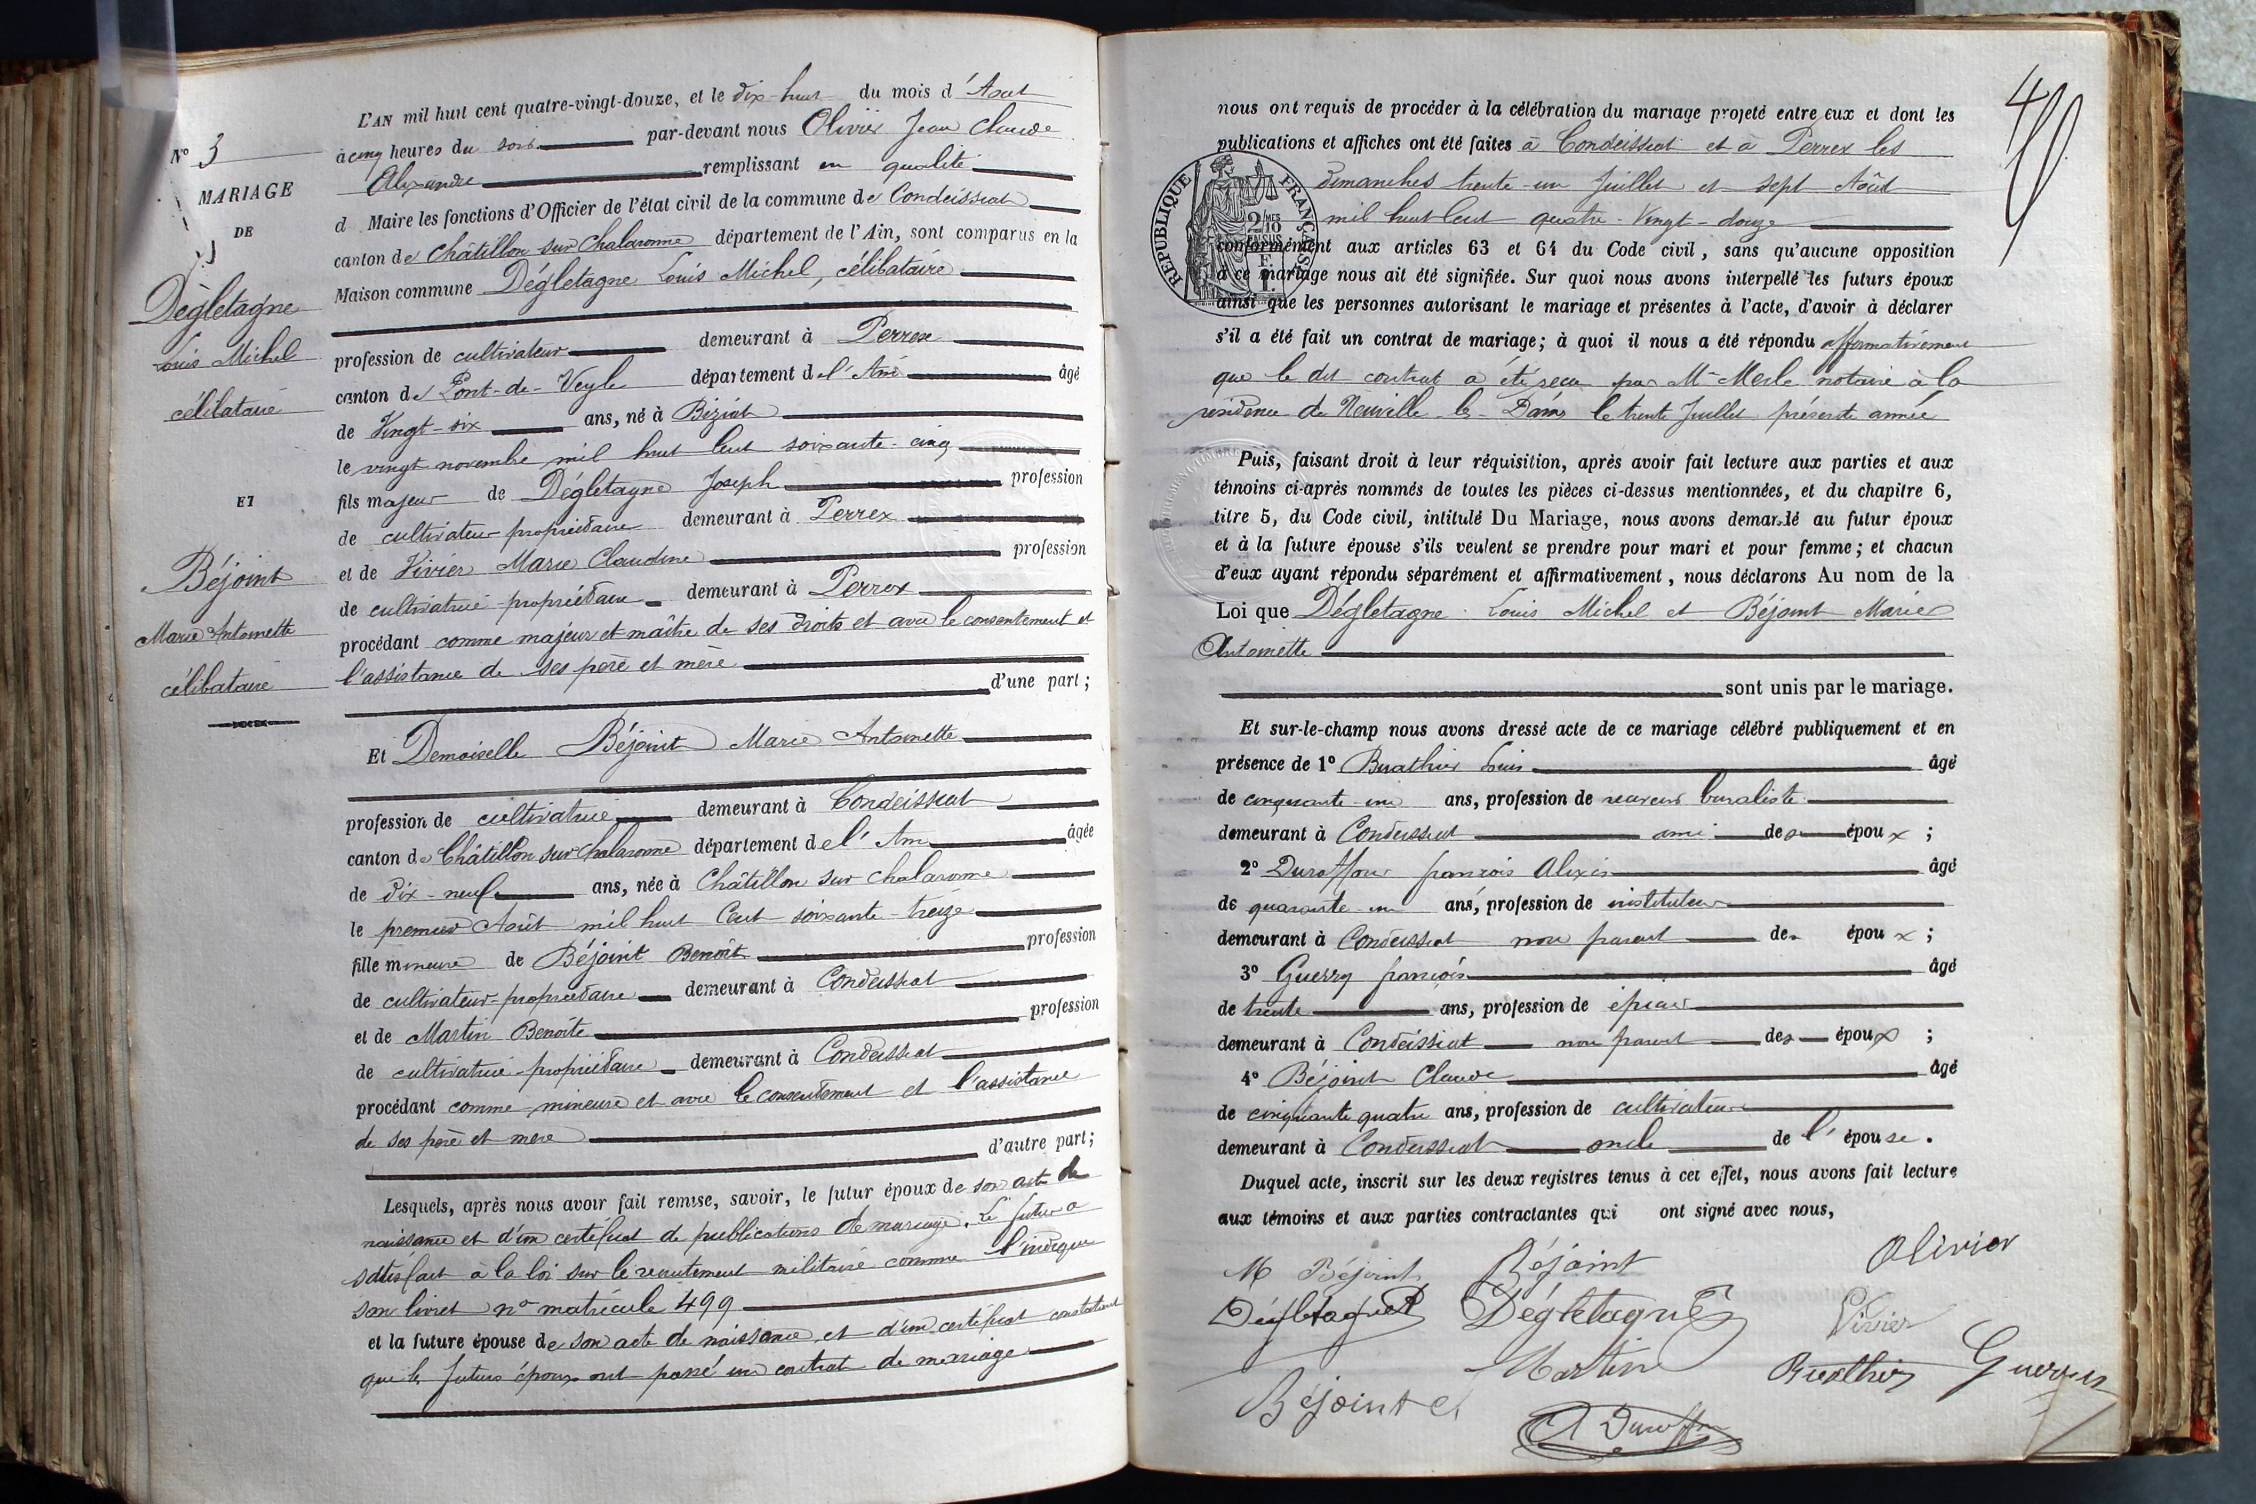 N° 3
MARIAGE
DE
Dégletagne
Louis Michel
célibataire
ET
Béjoint
Marie Antoinette
célibataire
L'AN mil huit cent quatre-vingt-douze, et le dix-huit du mois d'Aout
à cinq heures du soir par-devant nous Olivier Jean Claude
Alexandre remplissant en qualité
d Maire les fonctions d'Officier de l'état civil de la commune de Condeissiat
canton de Châtillon sur Chalaronne département de l'Ain, sont comparus en la
Maison commune Dégletagne Louis Michel, célibataire
profession de cultivateur demeurant à Perrex
canton de Pont-de-Veyle département de l'Ain âgé
de Vingt-six ans, né à Biziat
le vingt novembre mil huit Cent soixante-cinq
fils majeur de Dégletagne Joseph profession
de cultivateur-propriétaire demeurant à Perrex
et de Vivier Marie Claudine profession
de cultivatrice-propriétaire demeurant à Perrex
procédant comme majeur et maître de ses droits et avec le consentement et
l'assistance de ses père et mère
d'une part;
Et Demoiselle Béjoint Marie Antoinette
profession de cultivatrice demeurant à Condeissiat
canton de Châtillon sur Chalaronne département de l'Ain âgée
de dix-neuf ans, née à Châtillon sur Chalaronne
le premier Août mil huit Cent soixante-treize
fille mineure de Béjoint Benoît profession
de cultivateur-propriétaire demeurant à Condeissiat
et de Martin Benoîte profession
de cultivatrice-propriétaire demeurant à Condeissiat
procédant comme mineure et avec le consentement et l'assistance
de ses père et mère
d'autre part;
Lesquels, après nous avoir fait remise, savoir, le futur époux de son acte de
naissance et d'un certificat de publications de mariage. Le futur a
satisfait à la loi sur le recrutement militaire comme l'indique
son livret n° matricule 499
et la future épouse de son acte de naissance et d'un certificat constatant
que les futurs époux ont passé un contrat de mariage
nous ont requis de procéder à la célébration du mariage projeté entre eux et dont les
publications et affiches ont été faites à Condeissiat et à Perrex les
dimanches trente-un Juillet et sept Août
mil huit Cent quatre-Vingt-douze
RÉPUBLIQUE FRANÇAISE
2/10 MES
EN SUS
conformément aux articles 63 et 64 du Code civil, sans qu'aucune opposition
à ce mariage nous ait été signifiée. Sur quoi nous avons interpellé les futurs époux
ainsi que les personnes autorisant le mariage et présentes à l'acte, d'avoir à déclarer
s'il a été fait un contrat de mariage; à quoi il nous a été répondu affirmativement
que le dit contrat a été reçu par Me Merle notaire à la
résidence de Neuville-les-Dames le trente Juillet présente année
Puis, faisant droit à leur réquisition, après avoir fait lecture aux parties et aux
témoins ci-après nommés de toutes les pièces ci-dessus mentionnées, et du chapitre 6,
titre 5, du Code civil, intitulé Du Mariage, nous avons demandé au futur époux
et à la future épouse s'ils veulent se prendre pour mari et pour femme; et chacun
d'eux ayant répondu séparément et affirmativement, nous déclarons Au nom de la
Loi que Dégletagne Louis Michel et Béjoint Marie
Antoinette
sont unis par le mariage.
Et sur-le-champ nous avons dressé acte de ce mariage célébré publiquement et en
présence de 1° Buathier Louis âgé
de cinquante-un ans, profession de receveur buraliste
demeurant à Condeissiat ami des époux;
2° Duraffour françois Alexis âgé
de quarante-un ans, profession de instituteur
demeurant à Condeissiat non parent des époux;
3° Guerry françois âgé
de trente ans, profession de épicier
demeurant à Condeissiat non parent des époux;
4° Béjoint Claude âgé
de cinquante quatre ans, profession de cultivateur
demeurant à Condeissiat oncle de l'épouse.
Duquel acte, inscrit sur les deux registres tenus à cet effet, nous avons fait lecture
aux témoins et aux parties contractantes qui ont signé avec nous,
M Béjoint Béjoint Olivier
Dégletagne Dégletagne Vivier
Martin Buathier Guerry
Béjoint C
A Duraffour